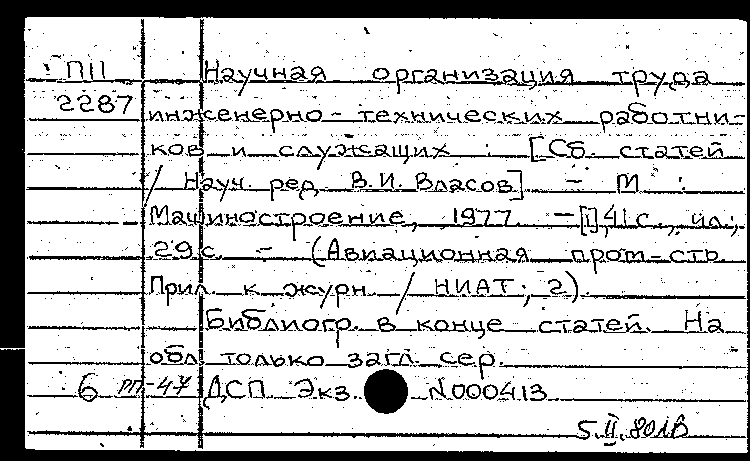 ПП Научная организация труда
2287 инженерно-технических работни-
ков и служащих : [Сб. статей
/ Науч. ред. В.И. Власов] - М :
Машиностроение, 1977. - [1], 41 с., ил.;
29 с. - (Авиационная пром-сть.
Прил. к журн. / НИАТ; 2).
Библиогр. в конце статей. На
обл. только загл. сер.
6 РП-47 ДСП Экз. N000413
5.II.80